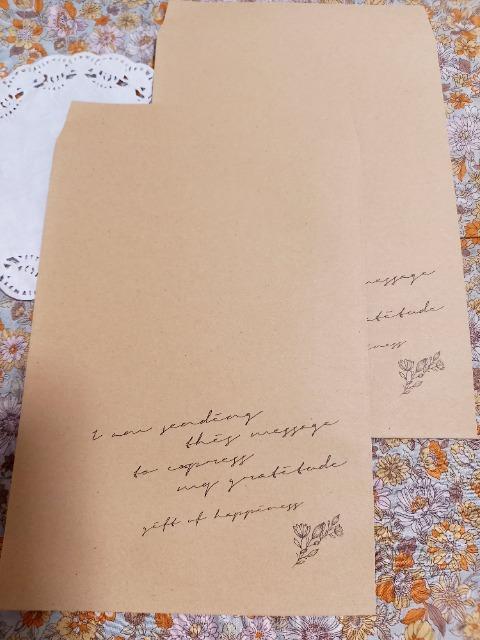 I am sending
this message
to express
my gratitude
gift of happiness
message
gratitude
happiness